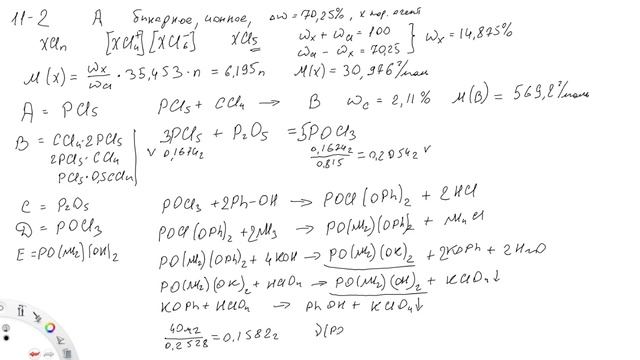 11-2 A бинарное, ионное, Δω = 70,25%, х хлор. агент
XCln [XCl4+][XCl6-] XCl5 ωx + ωCl = 100 ωCl - ωx = 70,25 } ωx = 14,875%
M(X) = ωx/ωCl · 35,453 · n = 6,195n M(X) = 30,976 г/моль
A = PCl5 PCl5 + CCl4 → B ωC = 2,11% M(B) = 569,2 г/моль
B = CCl4·2PCl5 3PCl5 + P2O5 = 5POCl3
2PCl5·CCl4 0,1674г 0,1674г/0,815 = 0,2054г
PCl5·0,5CCl4
C = P2O5 POCl3 + 2Ph-OH → POCl(OPh)2 + 2HCl
D = POCl3 POCl(OPh)2 + 2NH3 → PO(NH2)(OPh)2 + NH4Cl
E = PO(NH2)(OH)2 PO(NH2)(OPh)2 + 4KOH → PO(NH2)(OK)2 + 2KOPh + 2H2O
PO(NH2)(OK)2 + HClO4 → PO(NH2)(OH)2 + KClO4↓
KOPh + HClO4 → PhOH + KClO4↓
40мг/0,2528 = 0,1582г